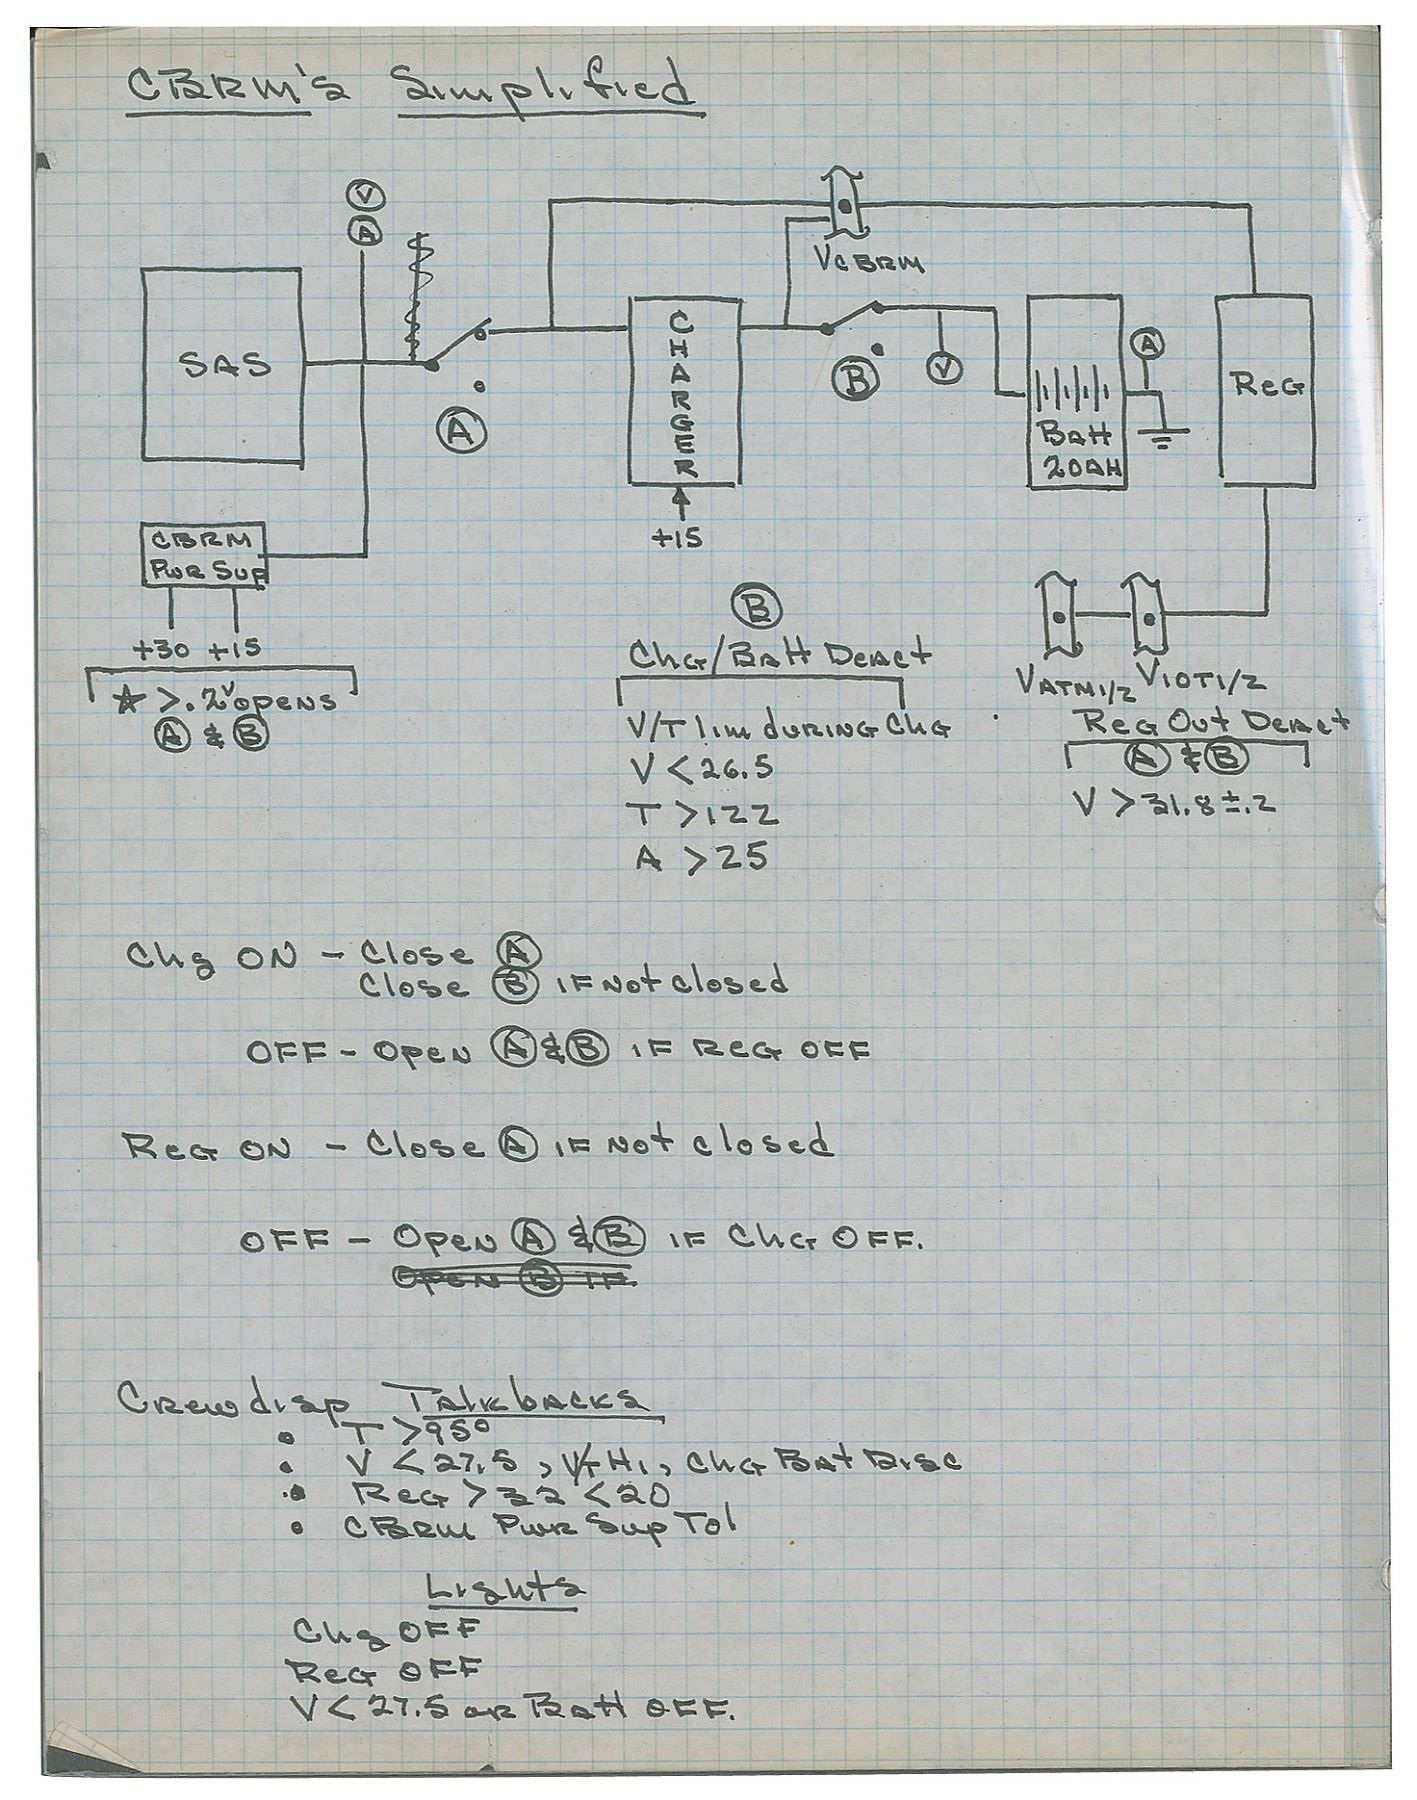 CBRM's Simplified
V
A
VCBRM
SAS
A
CHARGER
B
V
A
Batt
20AH
Reg
CBRM
Pwr Sup
+15
+30 +15
* >.2v opens
A & B
B
Chg/Batt Deact
V/T lim during Chg
V < 26.5
T > 122
A > 25
VATM1/2 VIOT1/2
Reg Out Deact
A & B
V > 31.8 ±.2
Chg ON - Close A
Close B if not closed
OFF - Open A & B if Reg OFF
Reg ON - Close A if not closed
OFF - Open A & B if Chg OFF.
Open B if
Crew disp Talkbacks
• T > 95°
• V < 27.5, V/T Hi, Chg Bat Disc
• Reg > 32 < 20
• CBRM Pwr Sup Tol
Lights
Chg OFF
Reg OFF
V < 27.5 or Batt OFF.